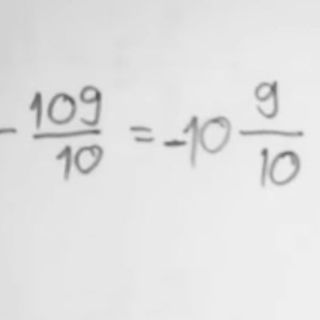 -109/10 = -10 9/10